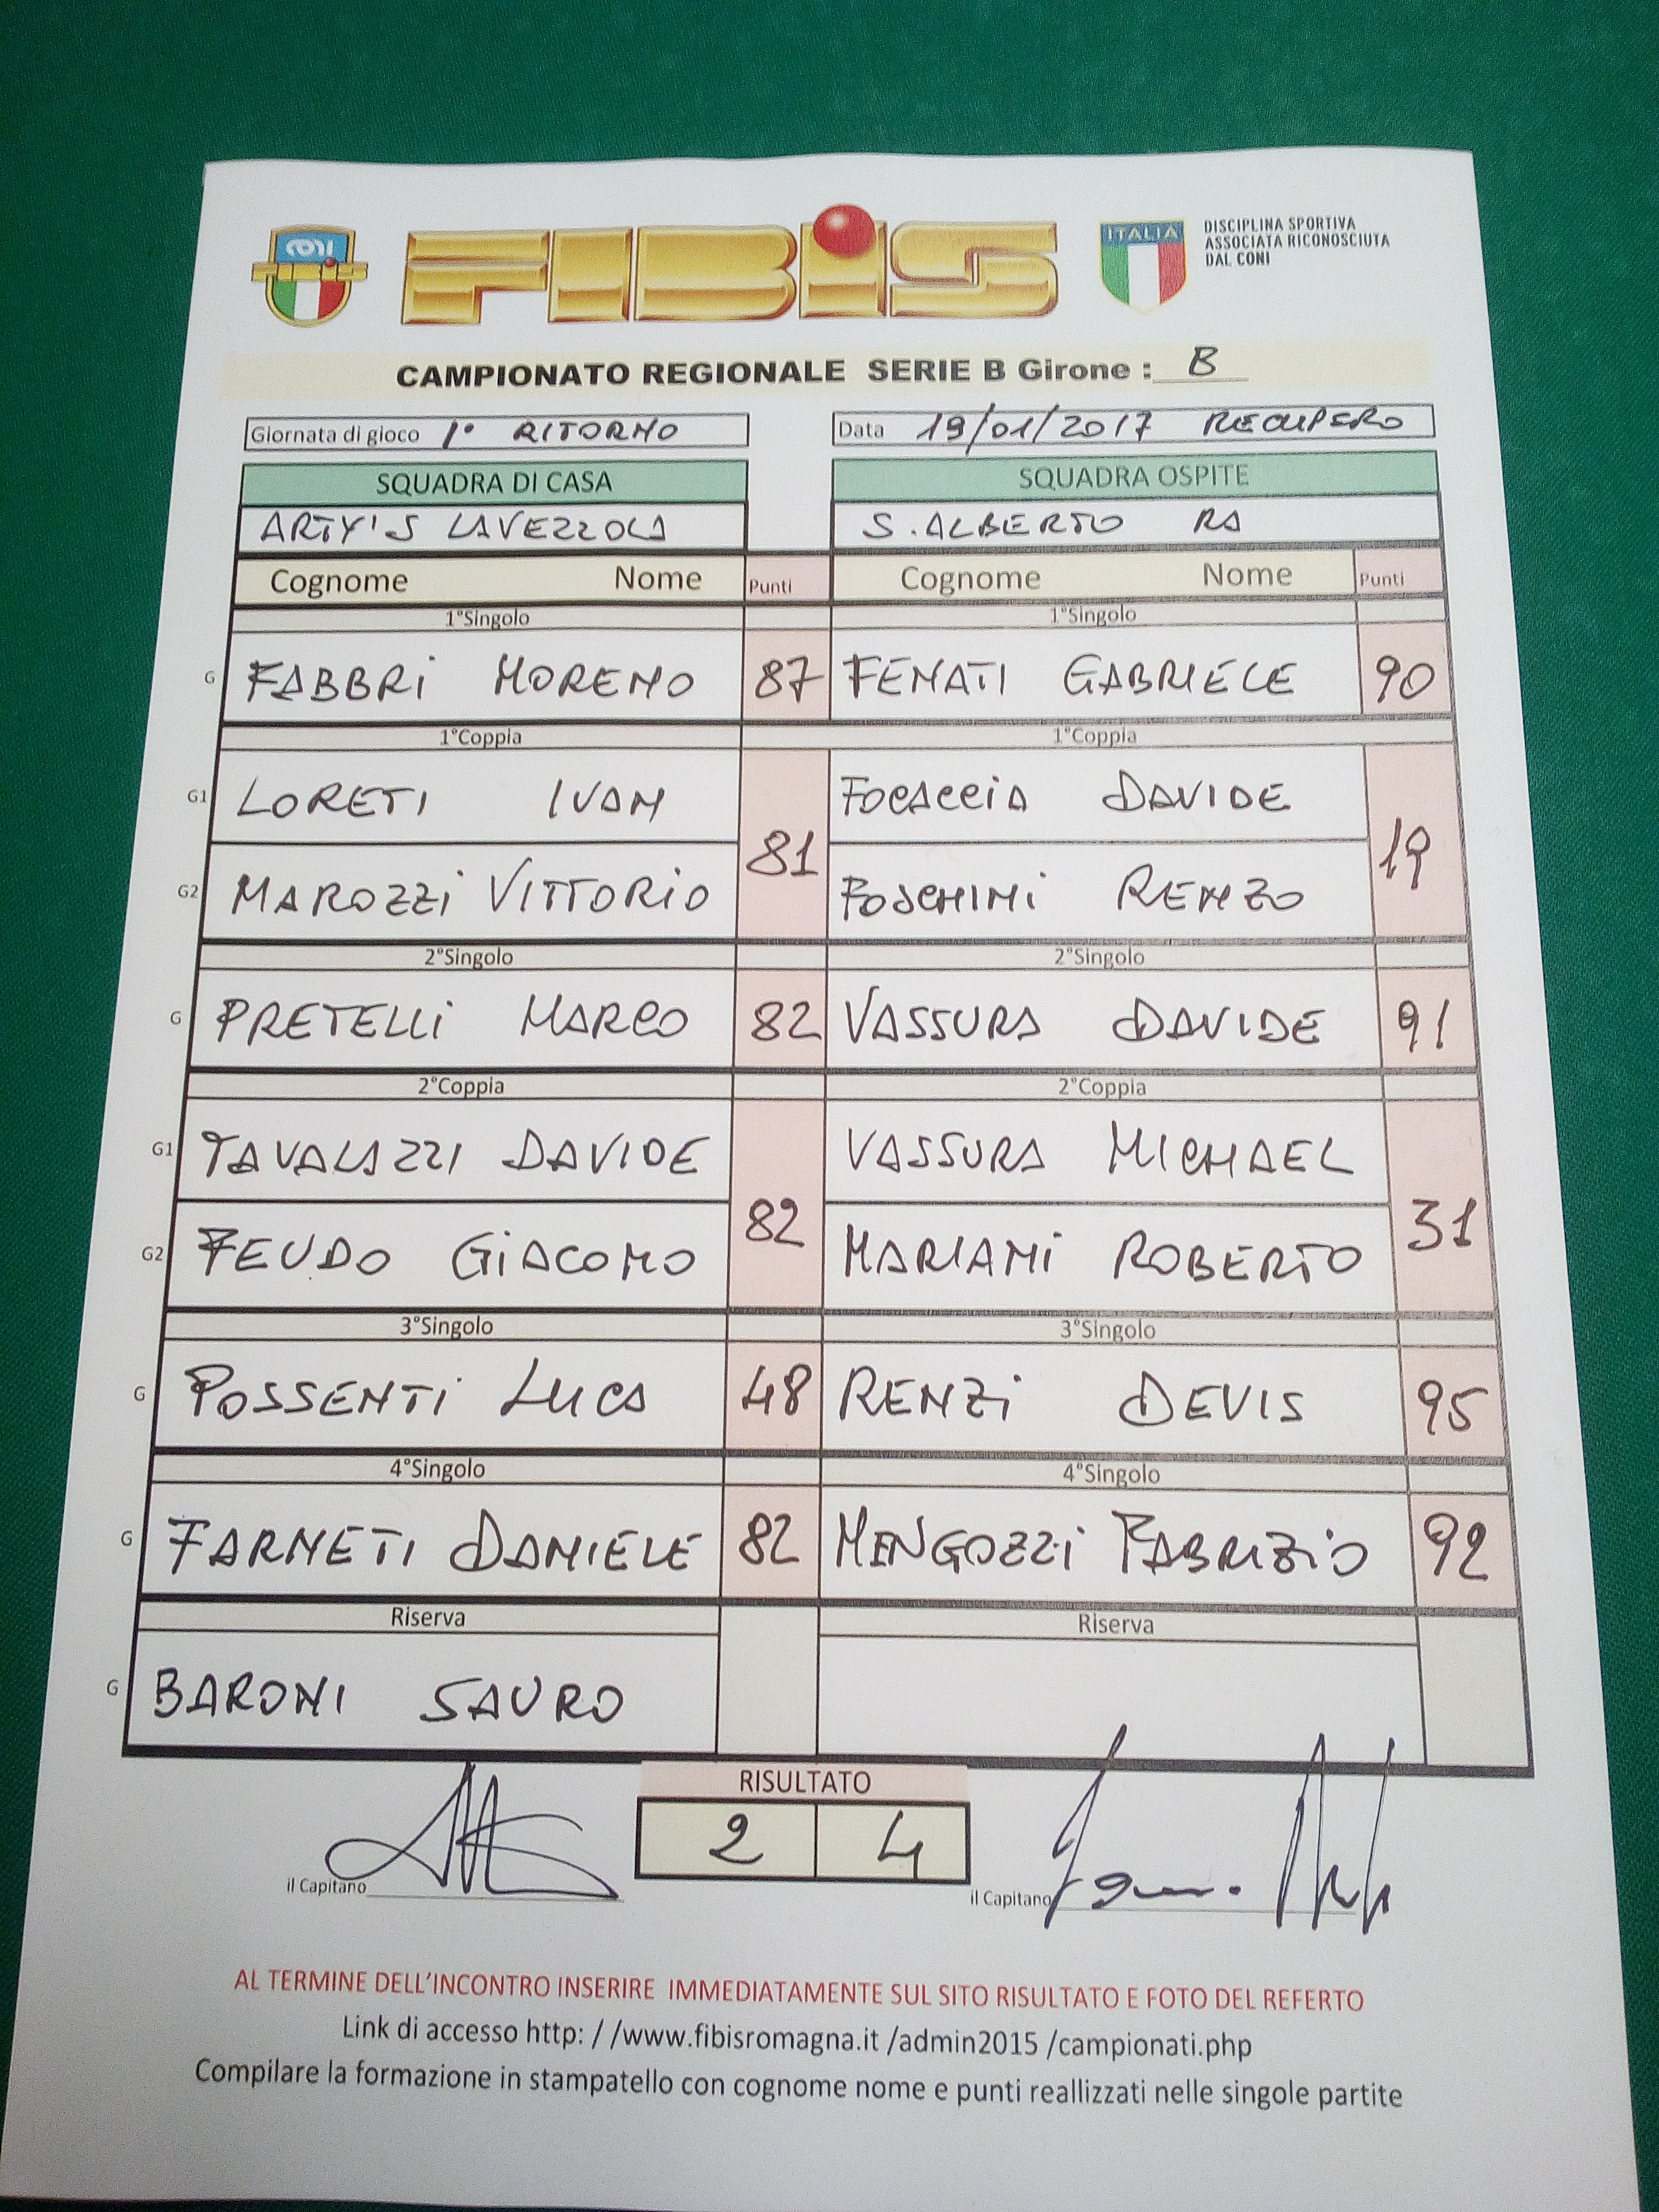 CONI
FIBIS
FIBIS
ITALIA
DISCIPLINA SPORTIVA
ASSOCIATA RICONOSCIUTA
DAL CONI
CAMPIONATO REGIONALE SERIE B Girone : B
Giornata di gioco 1° RITORNO
Data 19/01/2017 RECUPERO
SQUADRA DI CASA SQUADRA OSPITE
ARTY'S LAVEZZOLA S. ALBERTO RA
Cognome Nome Punti Cognome Nome Punti
1°Singolo 1°Singolo
G FABBRI MORENO 87 FENATI GABRIELE 90
1°Coppia 1°Coppia
G1 LORETI IVAN FOCACCIA DAVIDE
81 19
G2 MAROZZI VITTORIO FOSCHINI RENZO
2°Singolo 2°Singolo
G PRETELLI MARCO 82 VASSURA DAVIDE 91
2°Coppia 2°Coppia
G1 TAVALAZZI DAVIDE VASSURA MICHAEL
82 31
G2 FEUDO GIACOMO MARIANI ROBERTO
3°Singolo 3°Singolo
G POSSENTI LUCA 48 RENZI DEVIS 95
4°Singolo 4°Singolo
G FARNETI DANIELE 82 MENGOZZI FABRIZIO 92
Riserva Riserva
G BARONI SAURO
RISULTATO
2 4
il Capitano il Capitano
AL TERMINE DELL'INCONTRO INSERIRE IMMEDIATAMENTE SUL SITO RISULTATO E FOTO DEL REFERTO
Link di accesso http: / /www.fibisromagna.it /admin2015 /campionati.php
Compilare la formazione in stampatello con cognome nome e punti reallizzati nelle singole partite